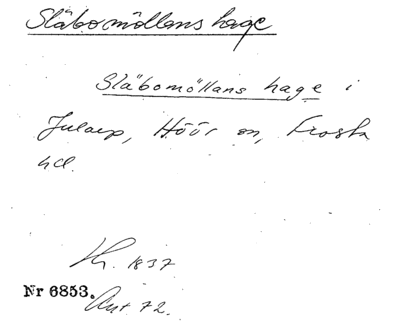 Släbomöllans hage
Släbomöllans hage i
Jularp, Höör sn, Frosta
hd.
Lh. 1837
Nr 6853.
Ant. 72.